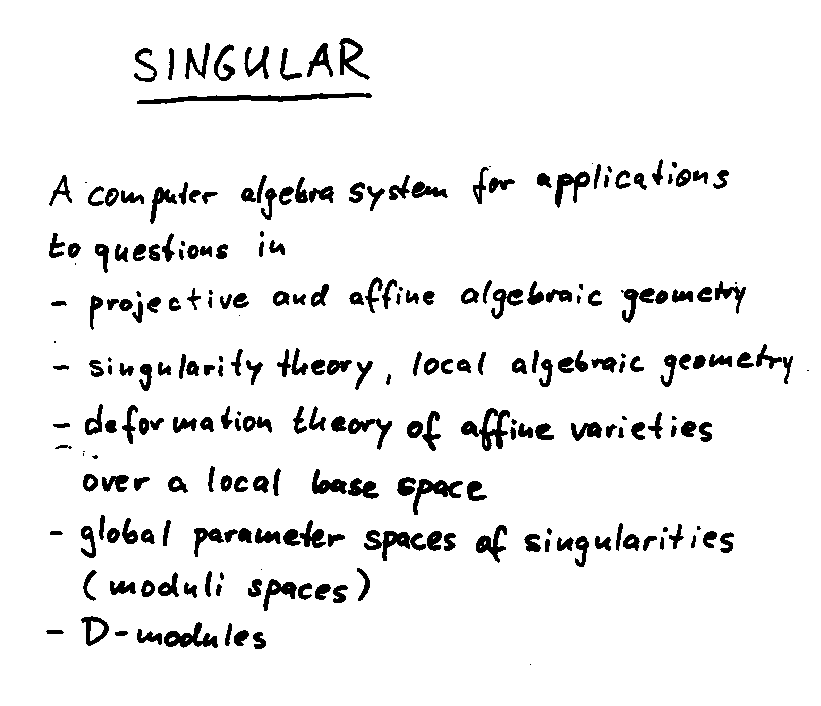 SINGULAR
A computer algebra system for applications
to questions in
- projective and affine algebraic geometry
- singularity theory, local algebraic geometry
- deformation theory of affine varieties
over a local base space
- global parameter spaces of singularities
(moduli spaces)
- D-modules